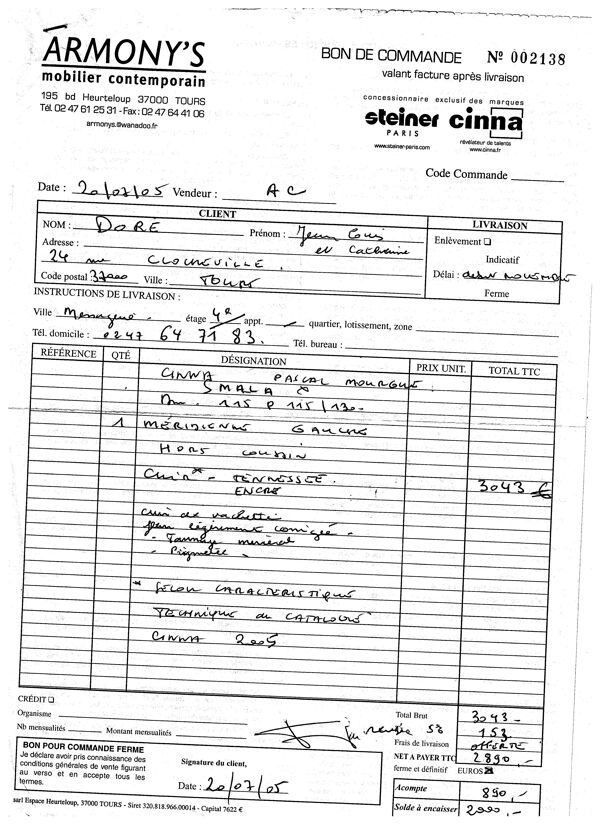 ARMONY'S
mobilier contemporain
195 bd Heurteloup 37000 TOURS
Tél. 02 47 61 25 31 - Fax : 02 47 64 41 06
armonys.@wanadoo.fr
BON DE COMMANDE Nº 002138
valant facture après livraison
concessionnaire exclusif des marques
steiner cinna
PARIS révélateur de talents
www.steiner-paris.com www.cinna.fr
Code Commande
Date : 20/07/05 Vendeur : AC
CLIENT LIVRAISON
NOM : DORÉ Prénom : Jean Louis
et Catherine
Enlèvement
Adresse : 24 rue CLOCHEVILLE. Indicatif
Code postal : 37000 Ville : TOURS Délai :
Ferme
INSTRUCTIONS DE LIVRAISON :
Ville étage 4e appt. quartier, lotissement, zone
Tél. domicile : 0247 64 71 83. Tél. bureau :
RÉFÉRENCE QTÉ DÉSIGNATION PRIX UNIT. TOTAL TTC
CINNA PASCAL MOURGUE
SMALA
115 P 115/130-
1 MÉRIDIENNE GAUCHE
HORS COUSSIN
Cuir* - TENNESSEE. 3043 €
ENCRE
cuir de vachette
légèrement corrigée -
- Tannage minéral
- Pigmenté -
* Selon CARACTERISTIQUE
TECHNIQUE du CATALOGUE
CINNA 2005
CRÉDIT
Organisme
Nb mensualités Montant mensualités
remise 5%
Total Brut 3043 -
153
Frais de livraison OFFERTE
NET A PAYER TTC 2890,-
ferme et définitif EUROS
BON POUR COMMANDE FERME
Je déclare avoir pris connaissance des
conditions générales de vente figurant
au verso et en accepte tous les
termes.
Signature du client,
Date : 20/07/05
Acompte 890,-
Solde à encaisser 2000,-
sarl Espace Heurteloup, 37000 TOURS - Siret 320.818.966.00014 - Capital 7622 €